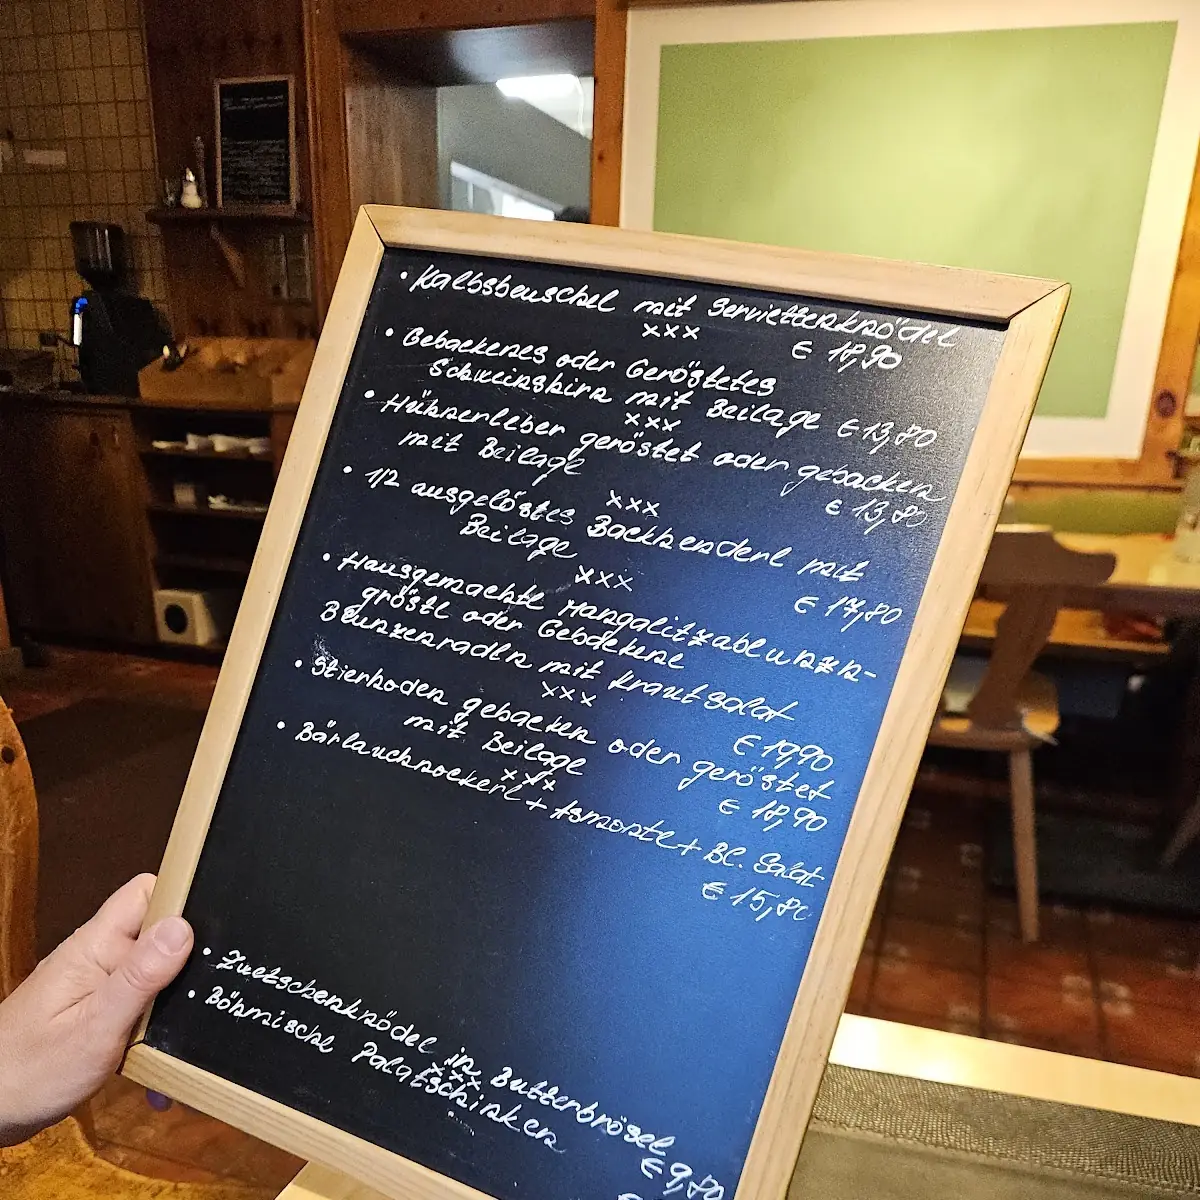 • Kalbsbeuschel mit Serviettenknödel
xxx € 17,90
• Gebackenes oder Geröstetes
Schweinshirn mit Beilage € 13,80
xxx
• Hühnerleber geröstet oder gebacken
mit Beilage € 13,80
xxx
• 1/2 ausgelöstes Backhenderl mit
Beilage € 17,80
xxx
• Hausgemachte Mangalitzablunzn-
gröstl oder Gebackene
Blunzenradln mit Krautsalat
xxx € 19,90
• Stierhoden gebacken oder geröstet
mit Beilage € 18,90
xxx
• Bärlauchnockerl + Asmonte + Bl. Salat
€ 15,80
• Zwetschenknödel in Butterbrösel
xxx € 9,80
• Böhmische Palatschinken €